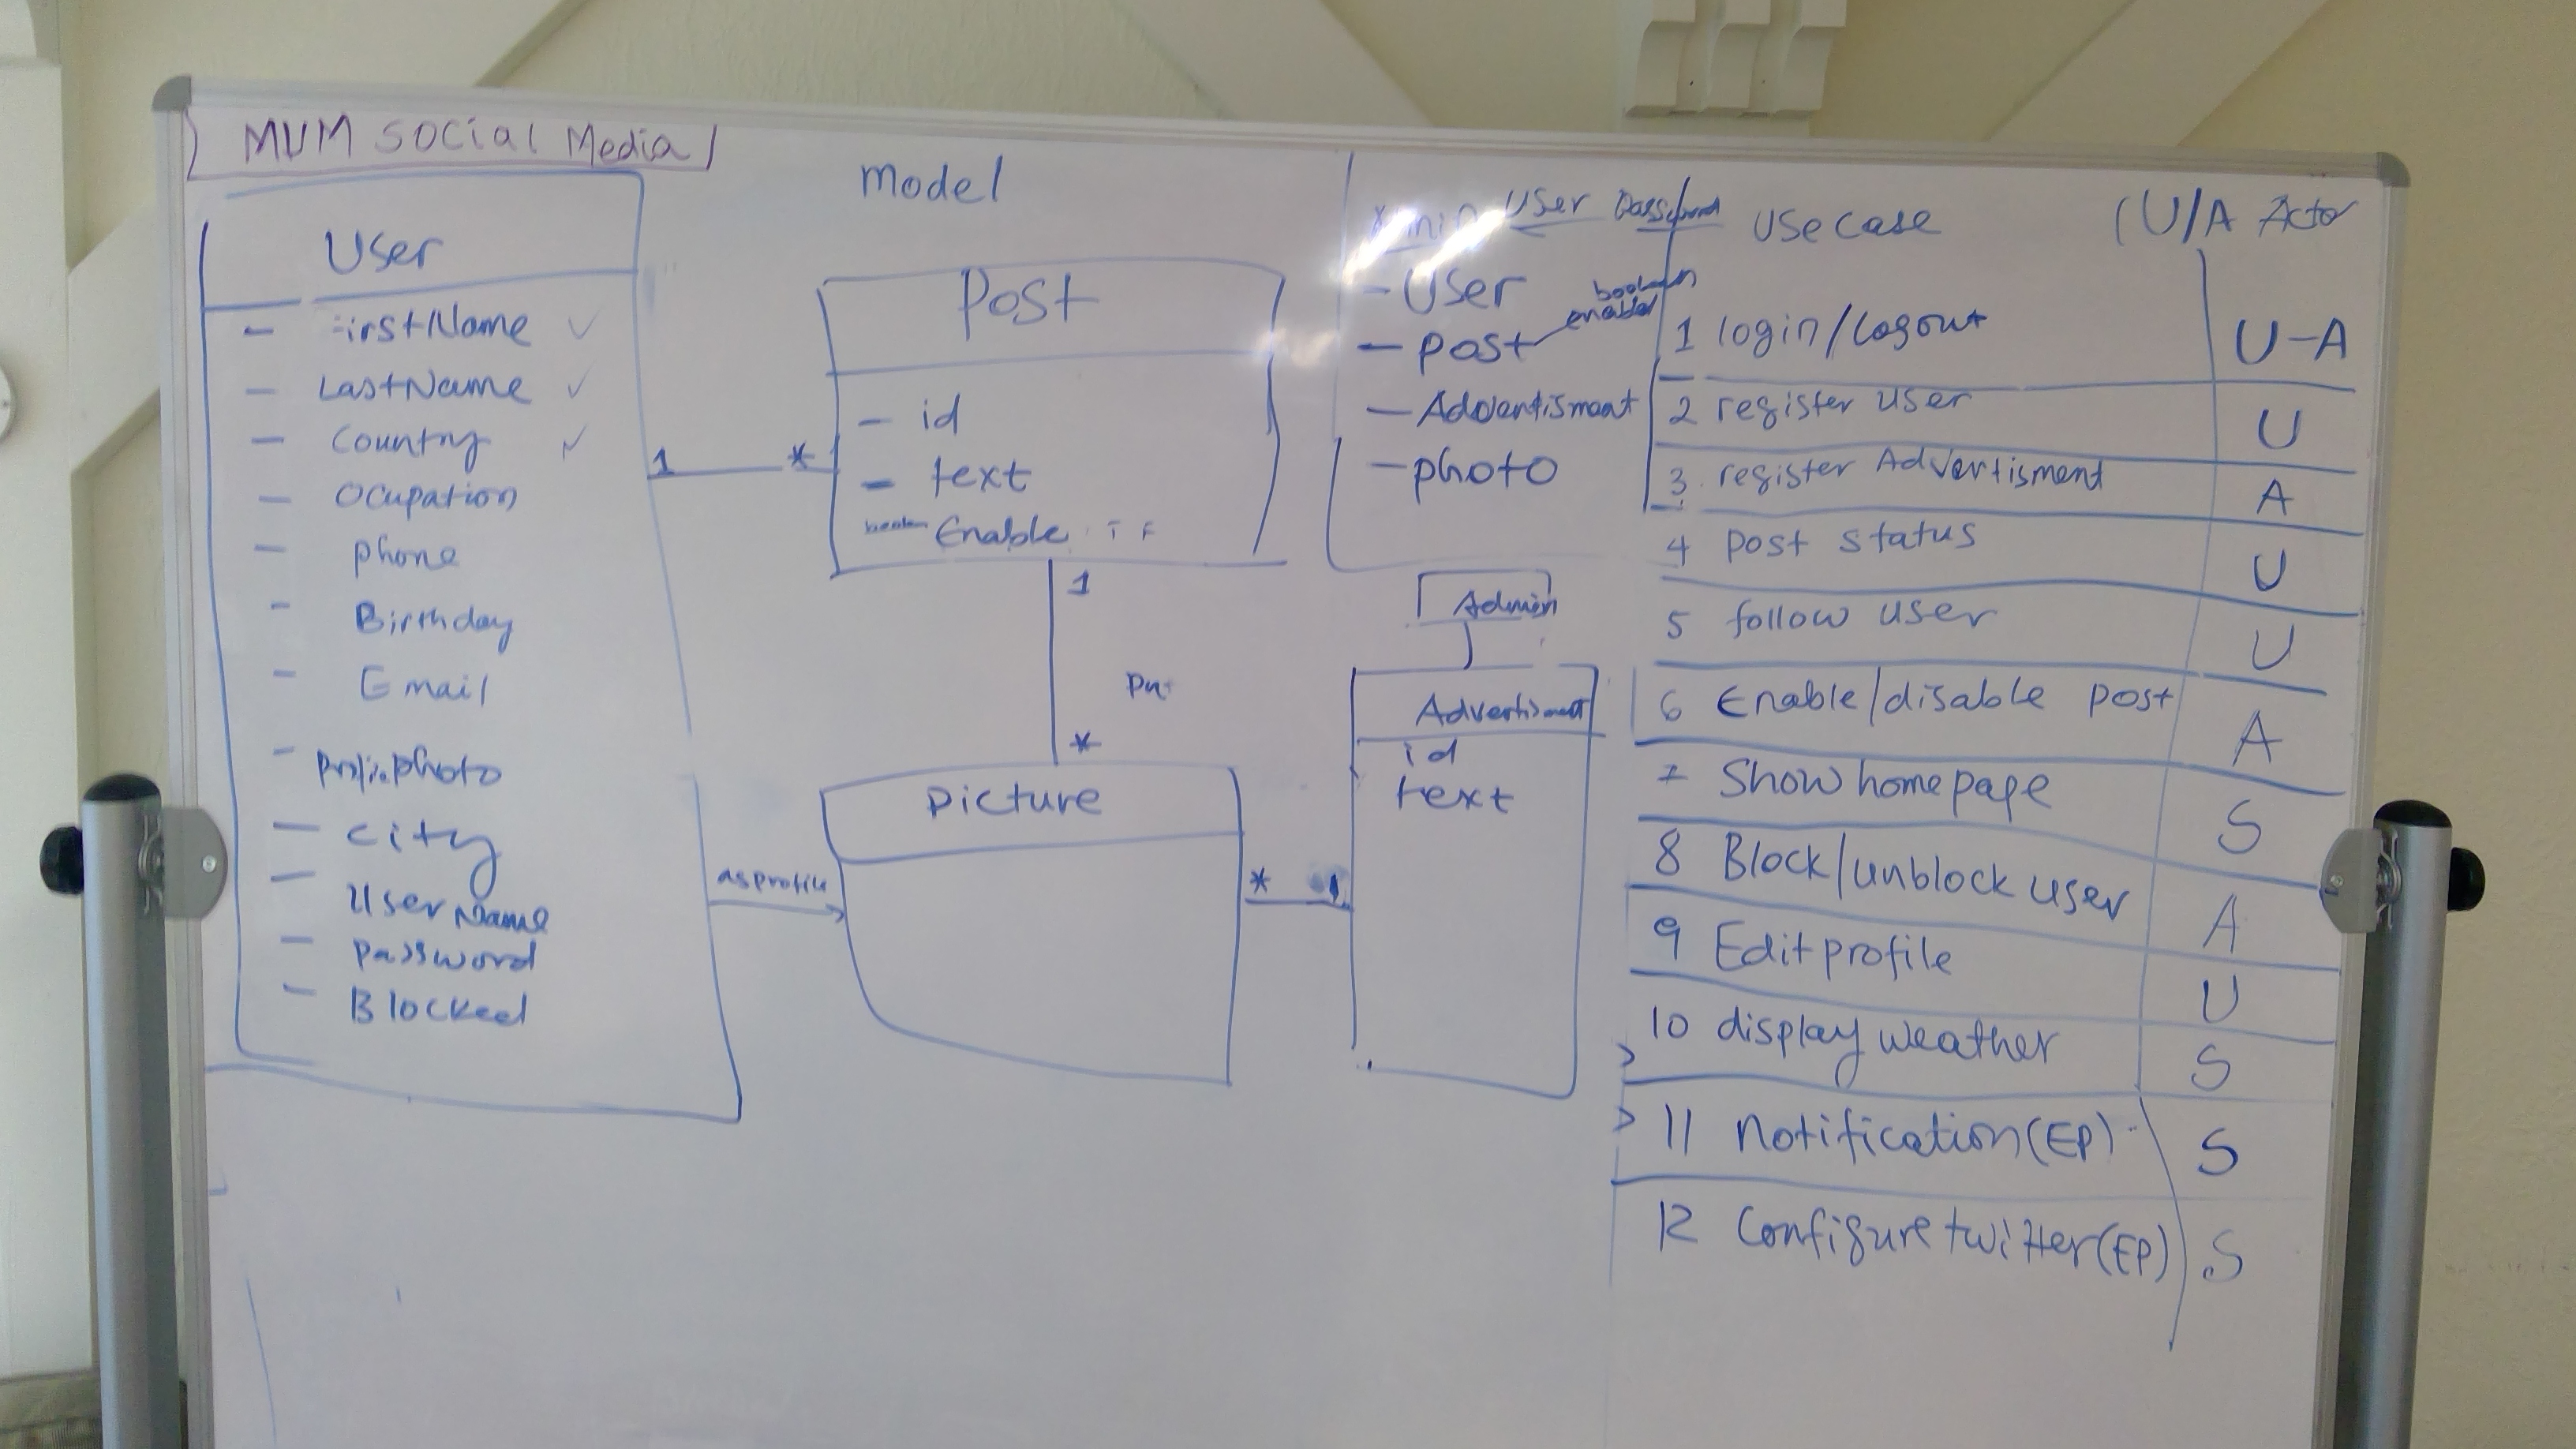 MUM Social Media
Model
User
- FirstName ✓
- LastName ✓
- Country ✓
- Ocupation
- phone
- Birthday
- Email
- photo
- City
- UserName
- Password
- Blocked
1 *
Post
- id
- text
boolean Enable T F
1
*
as profile
Picture
* 1
User Password
- User
- post
boolean
enabled
- Advertisment
- photo
Admin
Advertisment
id
text
Use Case (U/A Actor
1 login/Logout U-A
2 register User U
3. register Advertisment A
4 Post status U
5 follow user U
6 Enable/disable post A
7 Show home page S
8 Block/unblock user A
9 Edit profile U
10 display weather S
11 Notification(EP) S
12 Configure twitter(EP) S